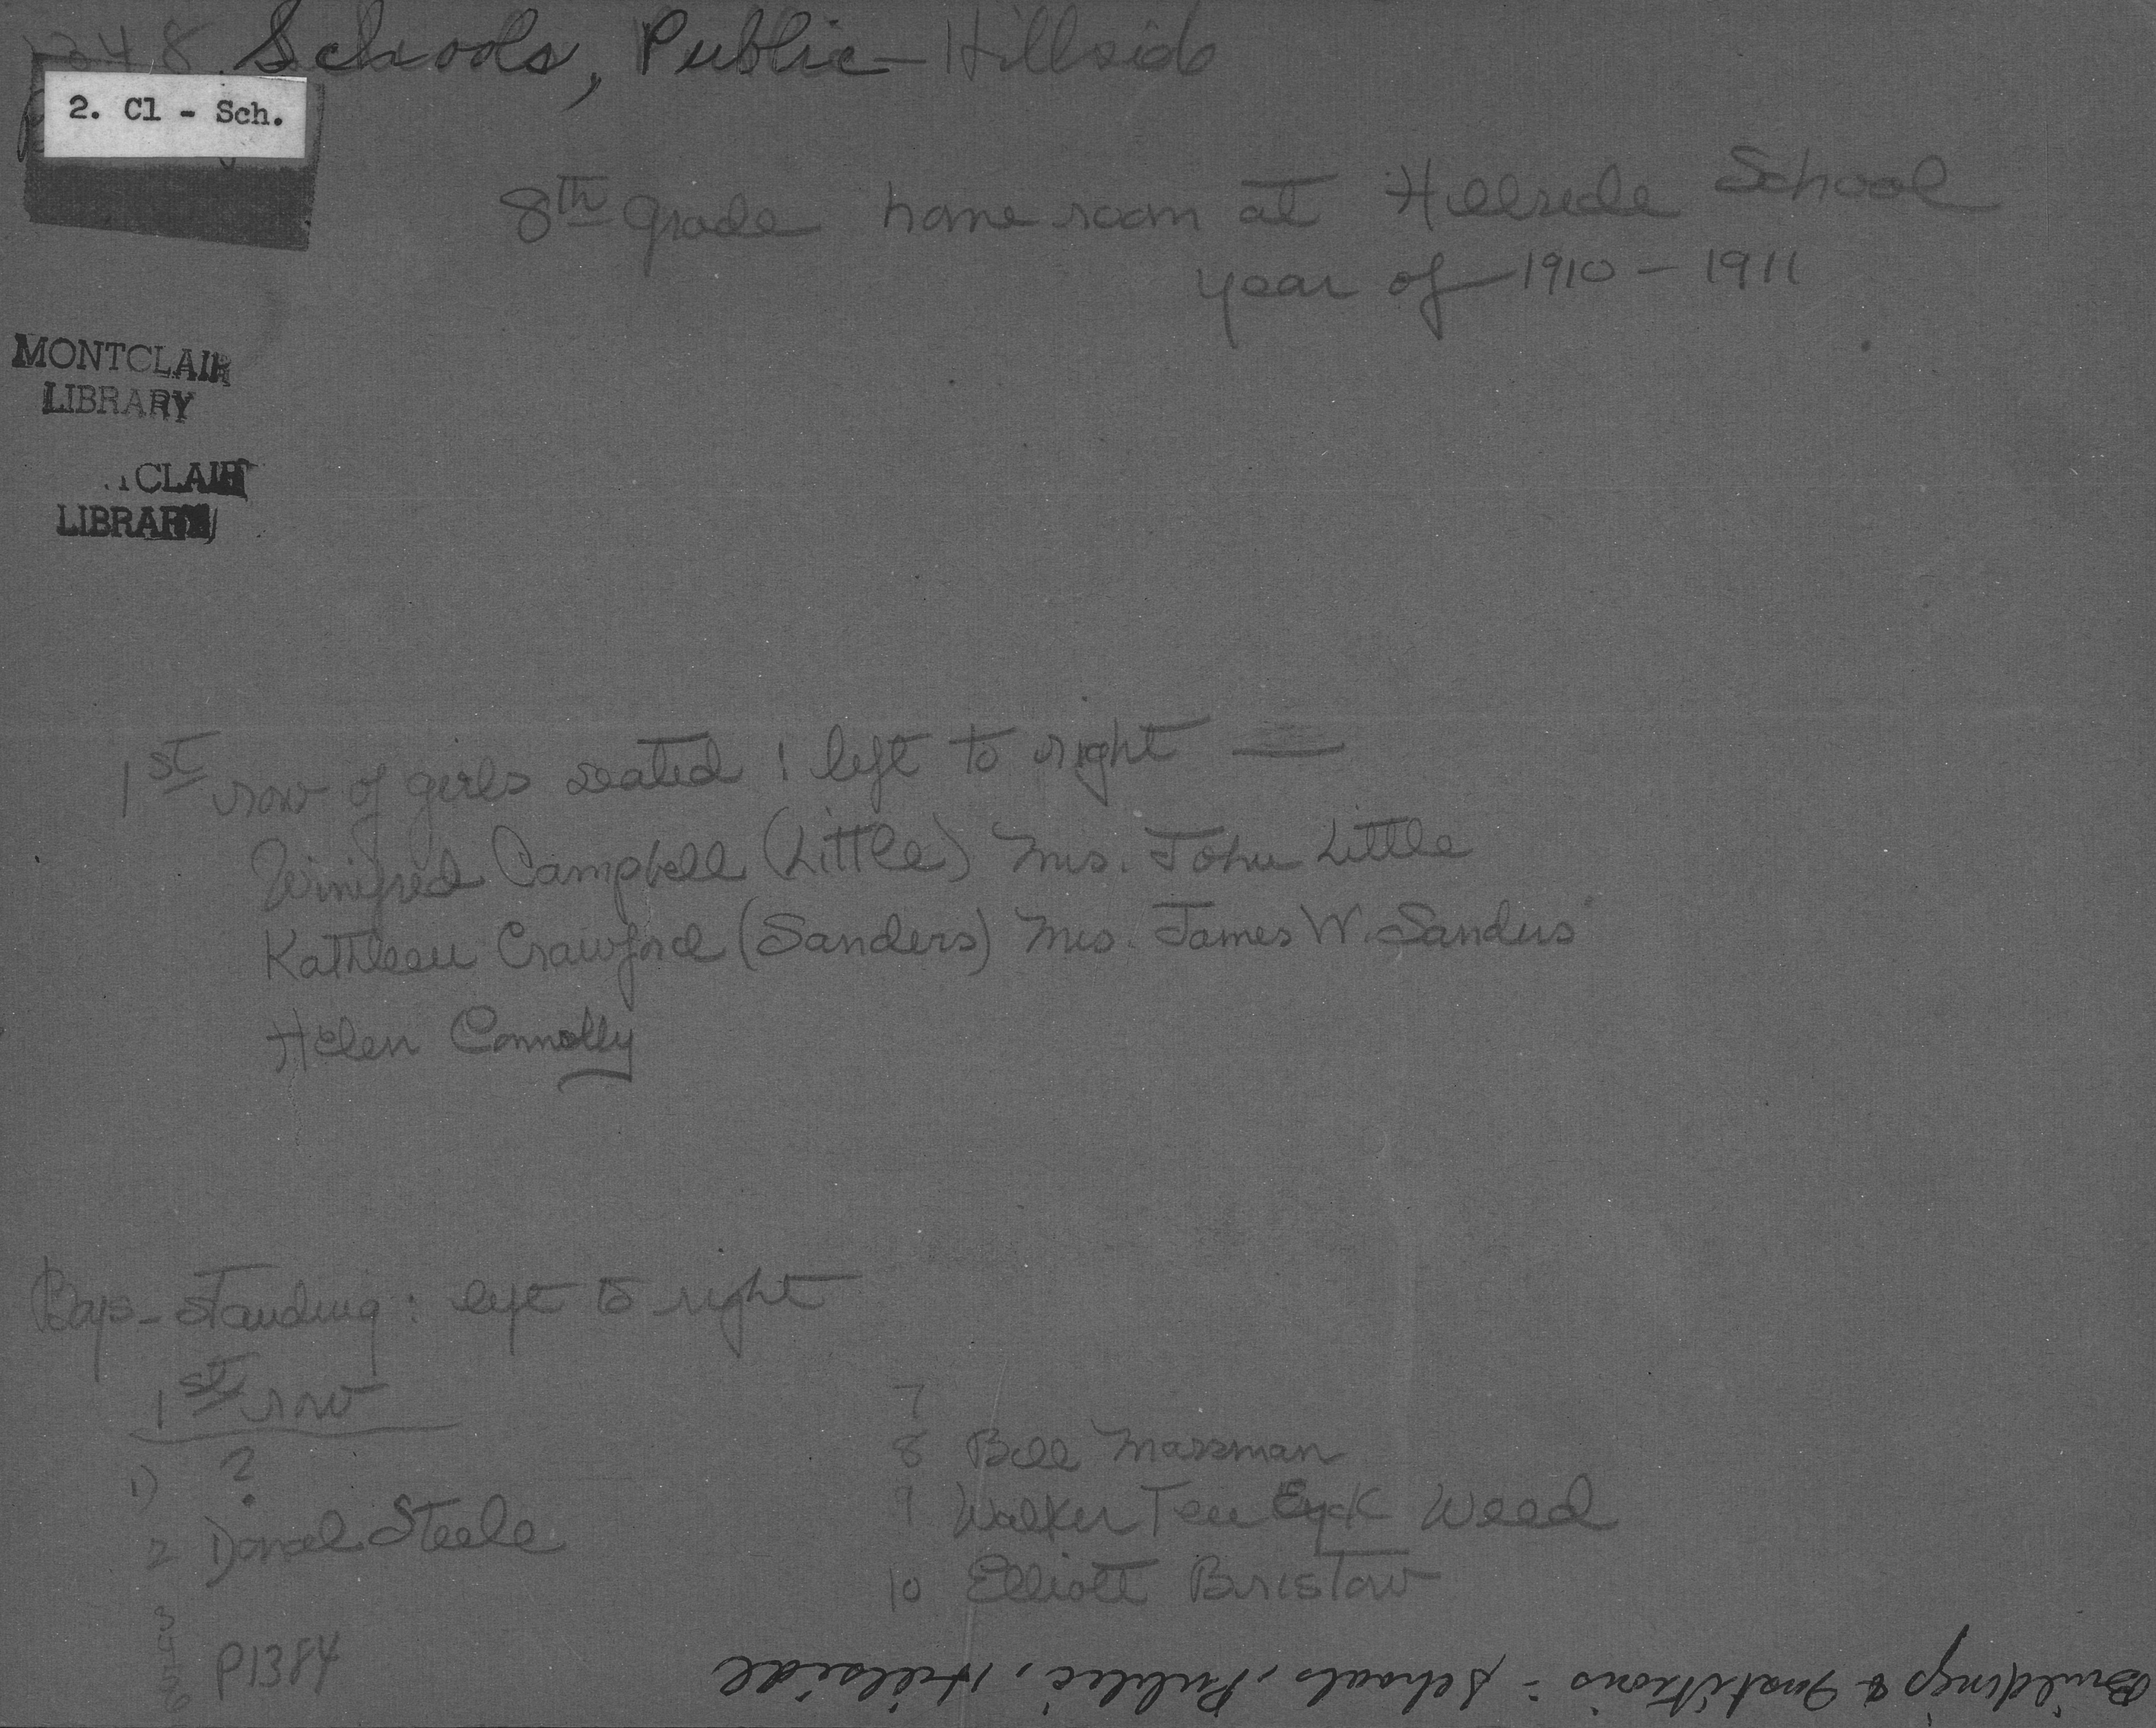 348 Schools, Public - Hillside
2. Cl - Sch.
8th grade home room at Hillside School
year of 1910 - 1911
MONTCLAIR
LIBRARY
CLAIR
LIBRARY
1st row of girls seated : left to right —
Winifred Campbell (Little) Mrs. John Little
Kathleen Crawford (Sanders) Mrs. James W. Sanders
Helen Connolly
Boys - standing : left to right
1st row
1) ?
2 Donal Steele
3
4
5
6
P1384
7
8 Bill Massman
9 Walker Ten Eyck Weed
10 Elliott Bristow
Buildings & Institutions : Schools, Public, Hillside